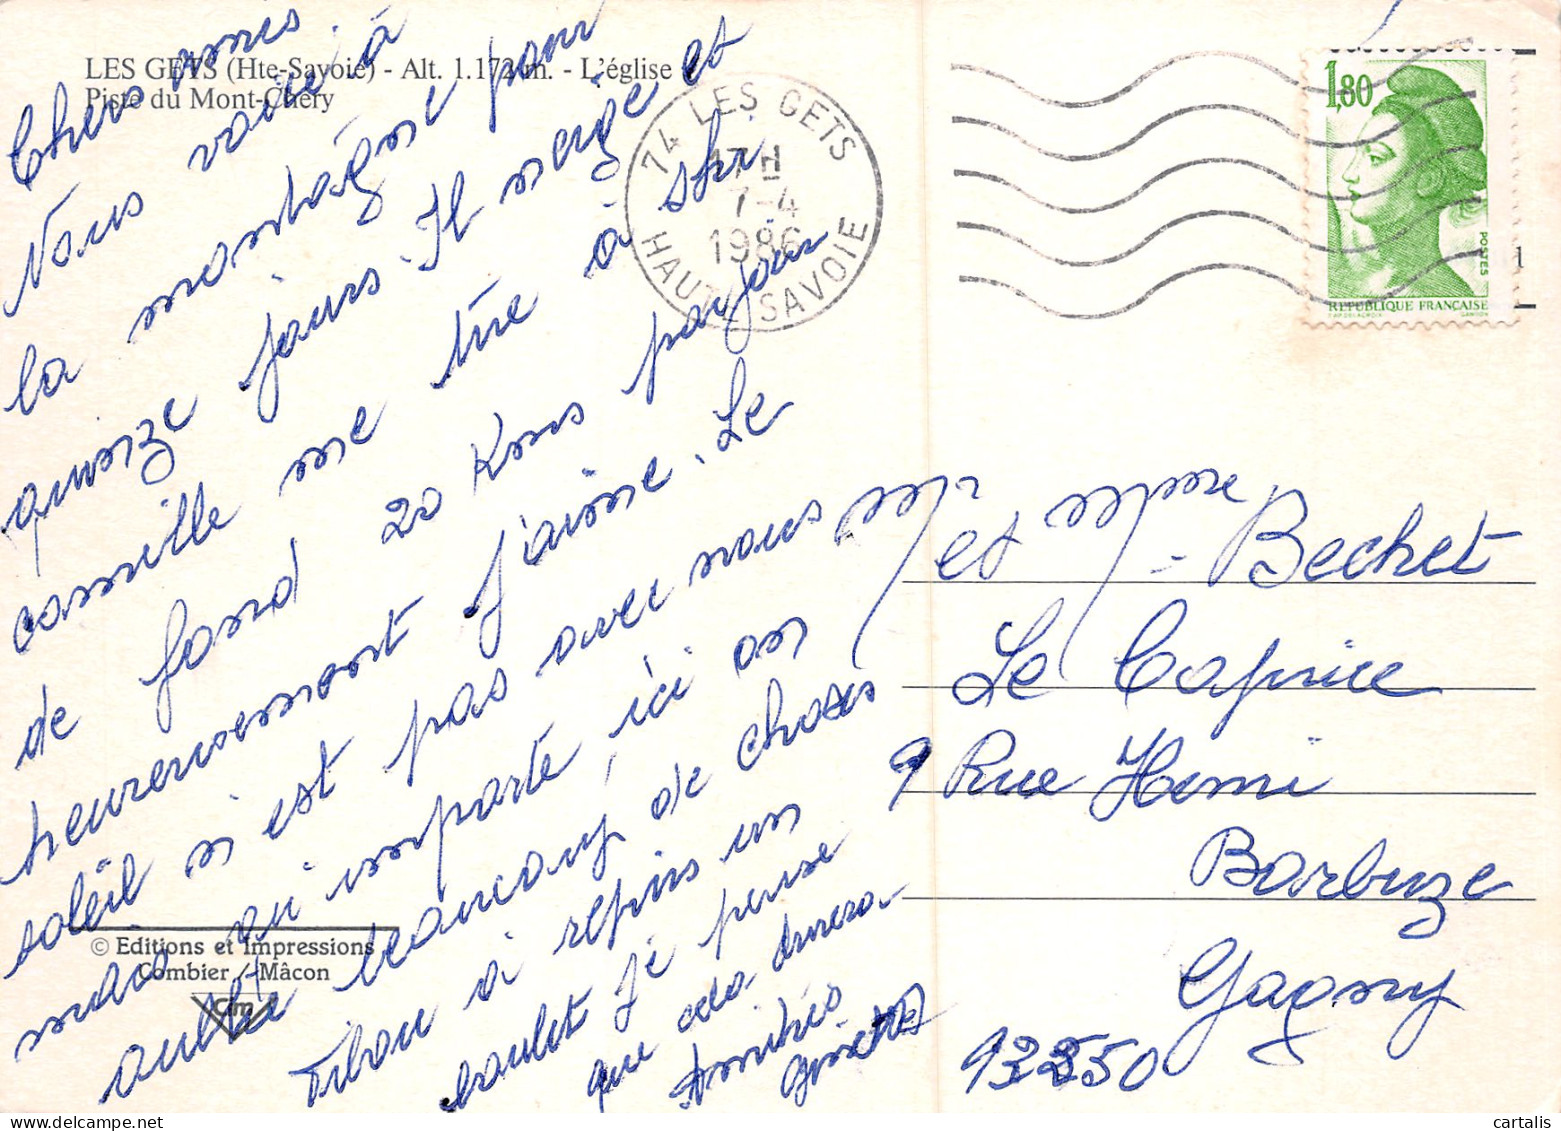 LES GETS (Hte-Savoie) - Alt. 1.172 m. - L'église et
Piste du Mont-Chéry
Chers amis
Nous voici à
la montagne pour
quinze jours. Il neige et
camille me tire à skr
de fond 20 Kms par jour
heureusement j'aime. Le
soleil n'est pas avec nous
mais qu'importe, ici on
oublie beaucoup de choses
Titou a repris un
boulot je pense
que cela durera
Amitiés
Ginette
© Editions et Impressions
Combier / Mâcon
Cim
74 LES GETS
17 H
7-4
1986
HAUTE SAVOIE
1,80
POSTES
REPUBLIQUE FRANÇAISE
D'AP. DELACROIX
GANDON
Mr et Mme - Bechet
Le Caprice
9 Rue Henri
Barbuze
Gagny
93250
cartalis